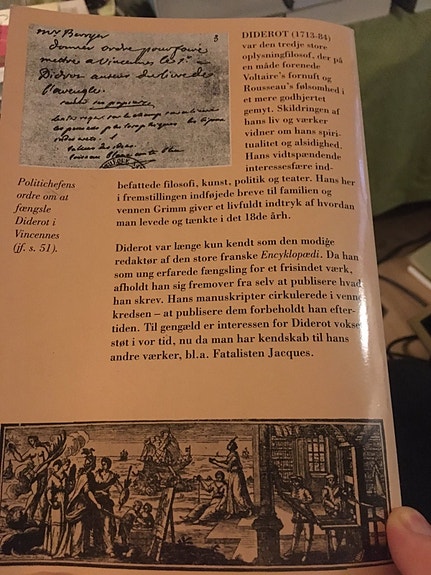 mr Berryer
donner ordre pour faire
mettre a Vincennes le Sr
Diderot auteur du livre de
l'aveugle.
3
DIDEROT (1713-84)
var den tredje store
oplysningfilosof, der på
en måde forenede
Voltaire's fornuft og
Rousseau's følsomhed i
et mere godhjertet
gemyt. Skildringen af
hans liv og værker
vidner om hans spiri-
tualitet og alsidighed.
Hans vidtspændende
interessesfære ind-
befattede filosofi, kunst, politik og teater. Hans her
i fremstillingen indføjede breve til familien og
vennen Grimm giver et livfuldt indtryk af hvordan
man levede og tænkte i det 18de årh.
Politichefens
ordre om at
fængsle
Diderot i
Vincennes
(jf. s. 51).
Diderot var længe kun kendt som den modige
redaktør af den store franske Encyklopædi. Da han
som ung erfarede fængsling for et frisindet værk,
afholdt han sig fremover fra selv at publisere hvad
han skrev. Hans manuskripter cirkulerede i venne
kredsen – at publisere dem forbeholdt han efter-
tiden. Til gengæld er interessen for Diderot vokse
støt i vor tid, nu da man har kendskab til hans
andre værker, bl.a. Fatalisten Jacques.